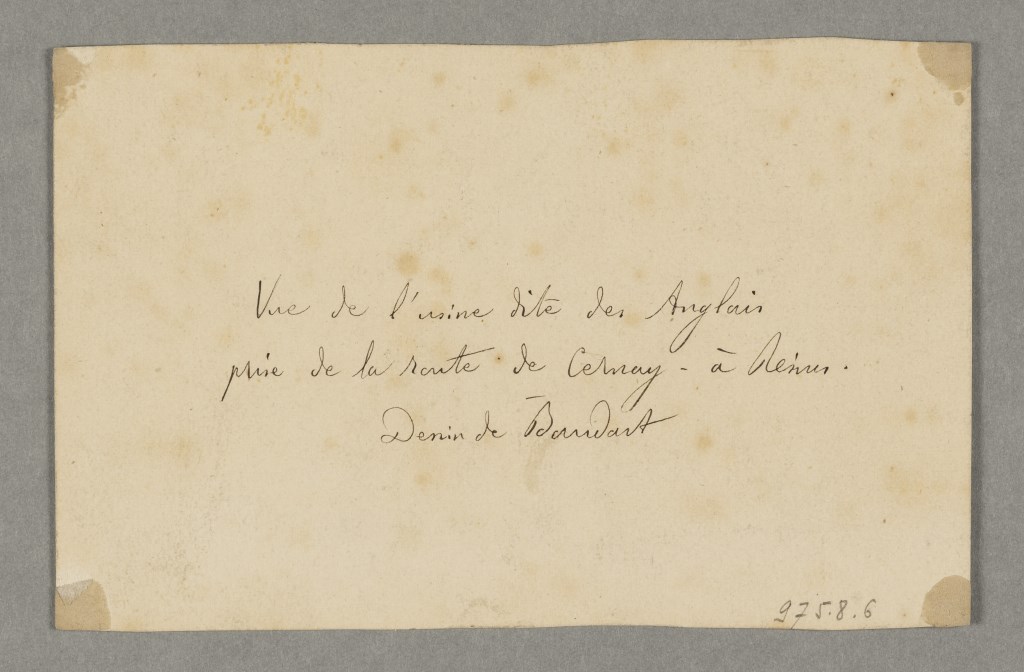 Vue de l'usine dite des Anglais
prise de la route de Cernay - à Reims.
Dessin de Baudart
975.8.6